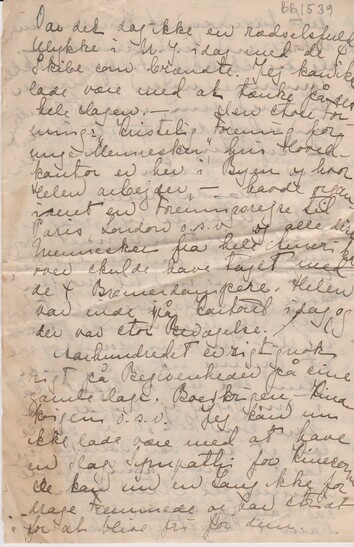 BB1539
Var det dog ikke en rædselsfuld
Ulykke i N.Y. idag med de 4
Skibe som brændte. Jeg kan ikke
lade være med at tænke på det
hele dagen. — Den store for-
ening: Kristelig Forening for
unge Mennesker" hvis Hoved-
kontor er her i Byen og hvor
Helen arbejder, — havde organ-
iseret en Foreningsrejse til
Paris, London o.s.v. og alle disse
Mennesker fra hele
over skulde have rejst med
de 4 Bremerdampere. Helen
var nede på kontoret idag og
der var stor Bevægelse.
Aarhundredet er rigtignok
rigt på Begivenheder på sine
gamle dage. Boerkrigen, — Kina
krigen o.s.v. Jeg kan nu
ikke lade være med at have
en Slags Sympathi for Kineserne
de kan nu en Gang ikke for-
drage Fremmede og har
for at blive fri for dem